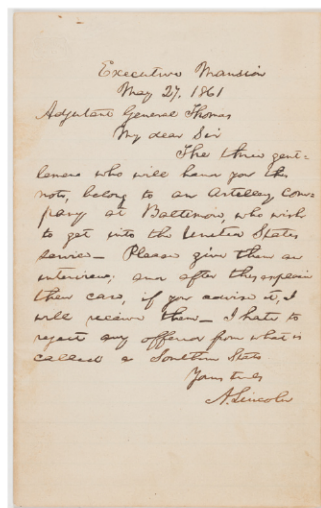 Executive Mansion
May 27, 1861
Adjutant General Thomas
My dear Sir
The three gent-
lemen who will hand you this
note, belong to an Artillery Com-
pany at Baltimore, who wish
to get into the United States
service— Please give them an
interview; and after they explain
their case, if you advise it, I
will receive them— I hate to
reject any offer from what is
called a Southern State
Yours truly
A. Lincoln